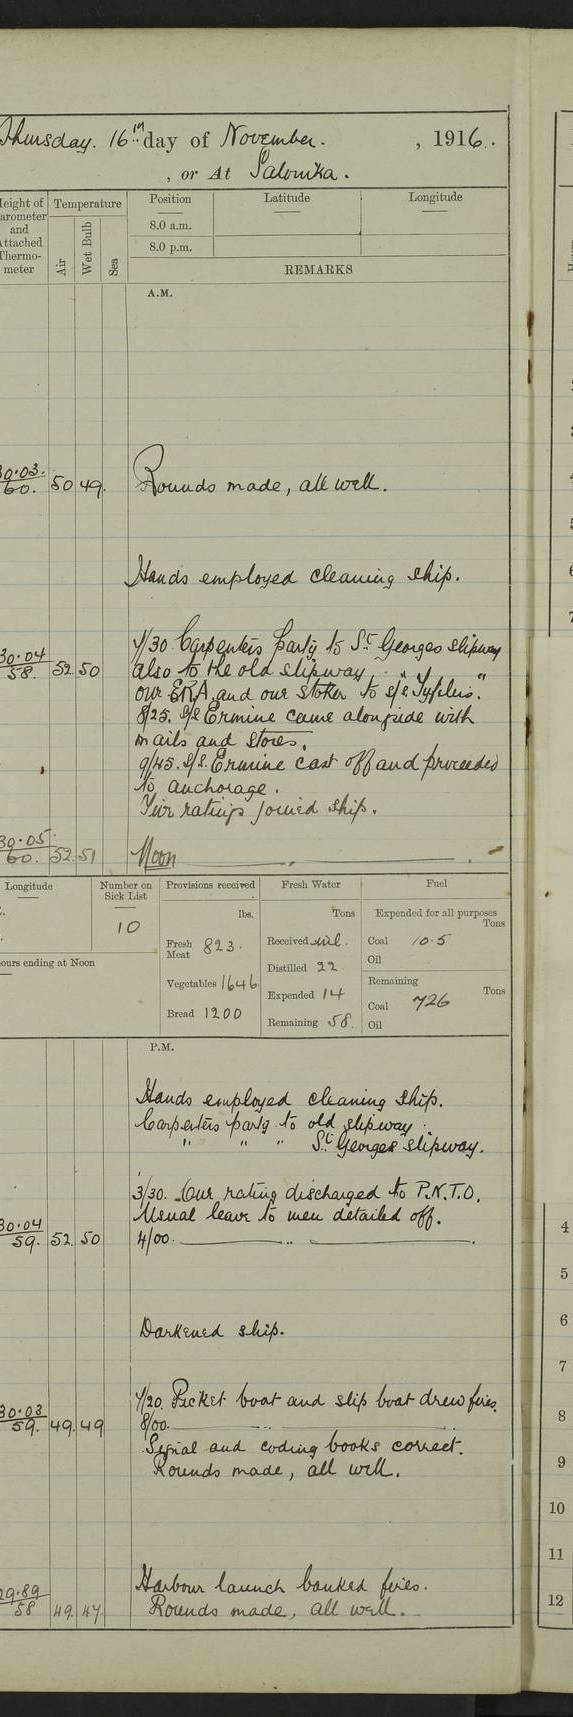 Thursday. 16th day of November. , 1916.
, or At Salonika.
Height of Barometer and Attached Thermometer
Temperature
Air
Wet Bulb
Sea
Position
Latitude
Longitude
8.0 a.m.
8.0 p.m.
REMARKS
A.M.
30.03. 60. 50 49. Rounds made, all well.
Hands employed cleaning ship.
7/30 Carpenters Party to St Georges slipway
30.04 58. 52 50 also to the old slipway
our ERA and our stoker to s/s
8/25. S/S Ermine came alongside with
mails and stores.
9/45. S/S. Ermine cast off and proceeded
to anchorage.
ratings joined ship.
30.05 60. 52. 51 Noon
Longitude
Number on Sick List
10
ours ending at Noon
Provisions received
lbs.
Fresh Meat 823.
Vegetables 1646
Bread 1200
Fresh Water
Tons
Received nil.
Distilled 22
Expended 14
Remaining 58.
Fuel
Expended for all purposes
Tons
Coal 10.5
Oil
Remaining
Tons
Coal 726
Oil
P.M.
Hands employed cleaning ship.
Carpenters party to old slipway.
" " " St Georges slipway.
3/30. Our rating discharged to P.N.T.O.
Usual leave to men detailed off.
30.04 59. 52. 50 4/00.
Darkened ship.
7/20. Picket boat and slip boat drew fires.
30.03 59. 49. 49 8/00.
Signal and coding books correct.
Rounds made, all well.
Harbour launch banked fires.
29.89 58 49. 47. Rounds made, all well.
4
5
6
7
8
9
10
11
12